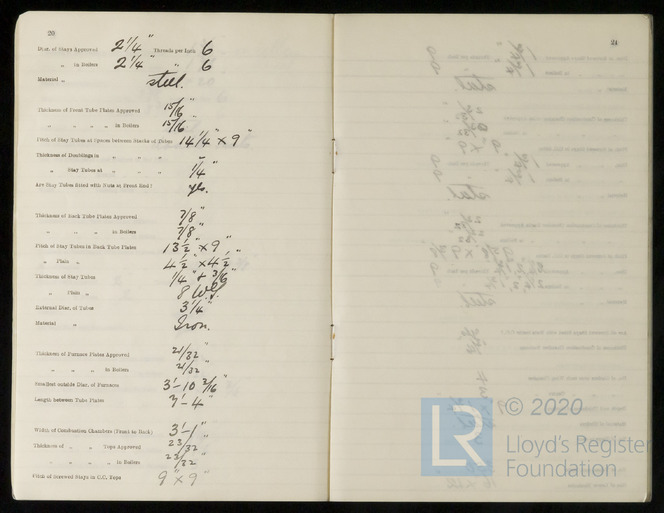 20
Diar. of Stays Approved 2 1/4" Threads per Inch 6
„ „ in Boilers 2 1/4" „ 6
Material „ steel.
Thickness of Front Tube Plates Approved 15/16"
„ „ „ „ in Boilers 15/16"
Pitch of Stay Tubes at Spaces between Stacks of Tubes 14 1/4" × 9"
Thickness of Doublings in „ „ „ "
„ Stay Tubes at „ „ „ 1/4"
Are Stay Tubes fitted with Nuts at Front End? yes.
Thickness of Back Tube Plates Approved 7/8"
„ „ „ in Boilers 7/8"
Pitch of Stay Tubes in Back Tube Plates 13 1/2" × 9"
„ Plain „ 4 1/2" × 4 1/2"
Thickness of Stay Tubes 1/4" & 3/16"
„ Plain „ 8 W.G.
External Diar. of Tubes 3 1/4"
Material „ Iron.
Thickness of Furnace Plates Approved 21/32"
„ „ „ in Boilers 21/32"
Smallest outside Diar. of Furnaces 3'-10 3/16"
Length between Tube Plates 7'-4"
Width of Combustion Chambers (Front to Back) 3'-1"
Thickness of „ „ Tops Approved 23/32"
„ „ „ „ in Boilers 23/32"
Pitch of Screwed Stays in C.C. Tops 9" × 9"
21
LR © 2020
Lloyd's Register
Foundation